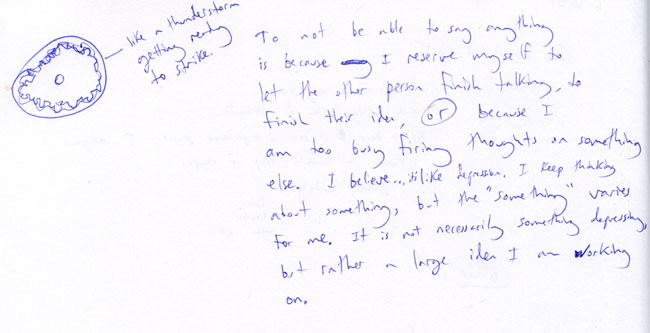 like a thunderstorm
getting ready
to strike.
To not be able to say anything
is because I reserve myself to
let the other person finish talking, to
finish their idea, or because I
am too busy firing thoughts on something
else. I believe... it's like depression. I keep thinking
about something, but the "something" varies
for me. It is not necessarily something depressing,
but rather a large idea I am working
on.